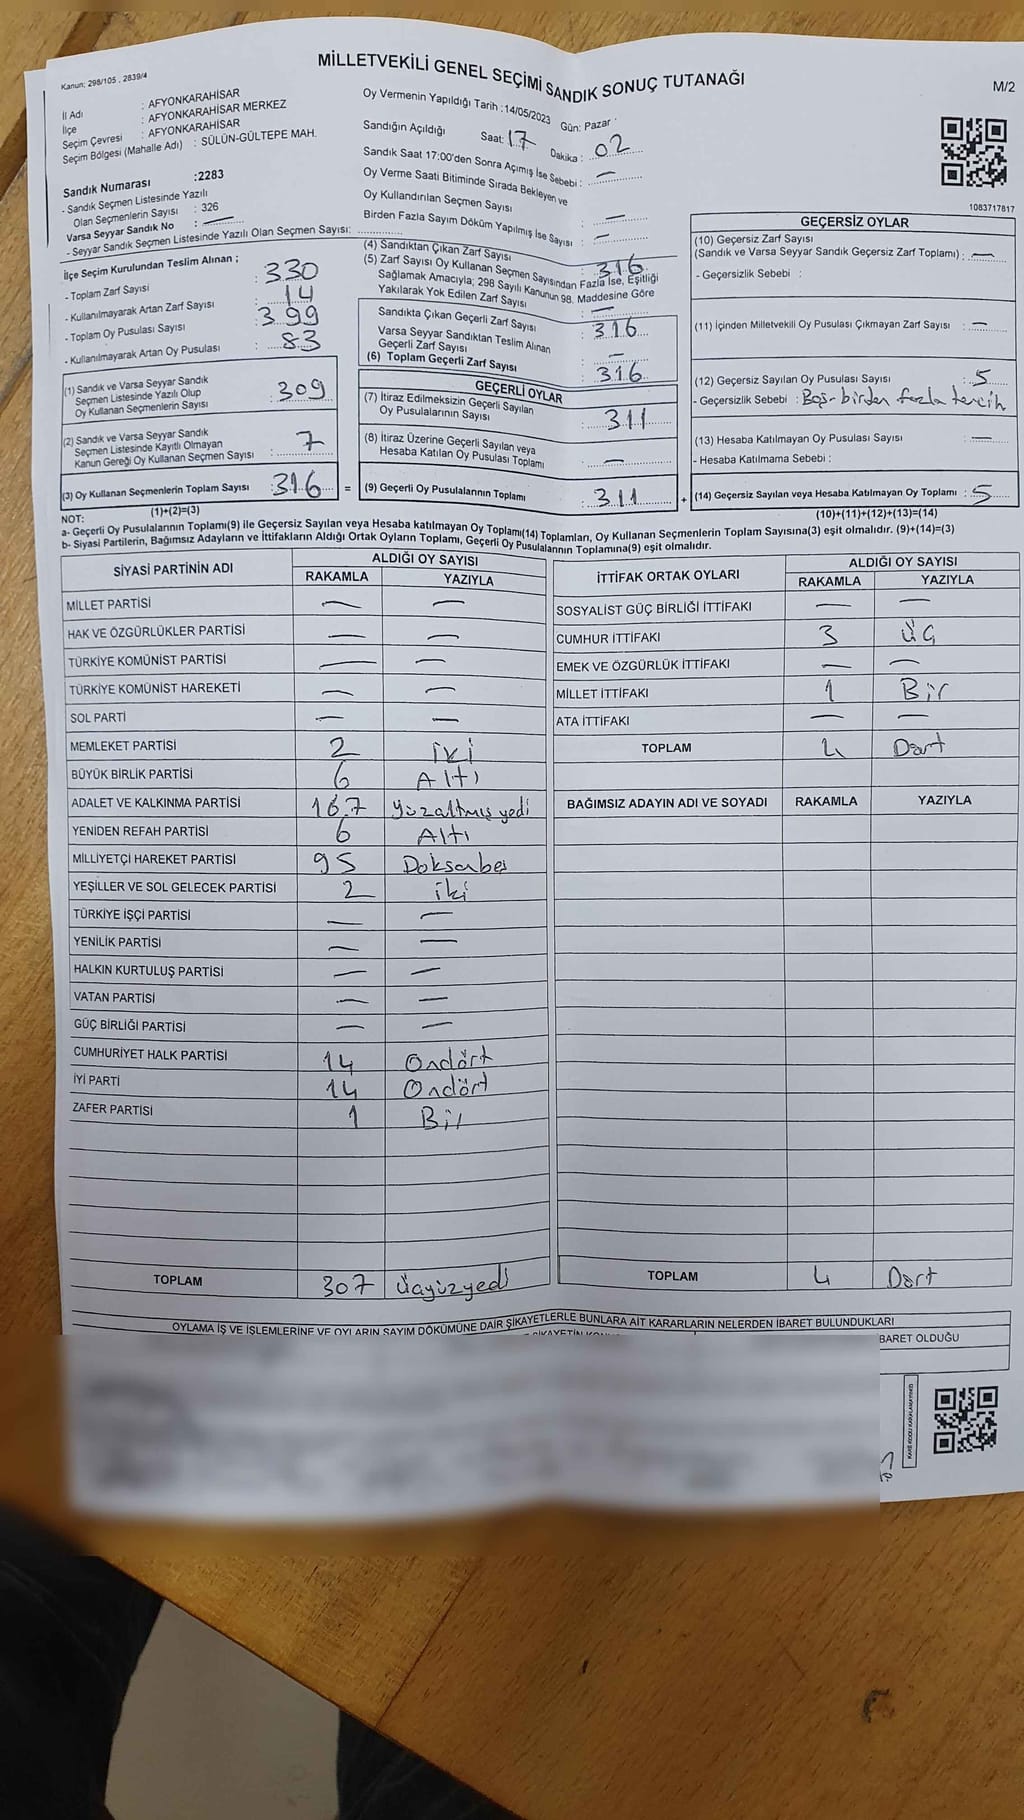 MİLLETVEKİLİ GENEL SEÇİMİ SANDIK SONUÇ TUTANAĞI
Kanun: 298/105 , 2839/4
M/2
İl Adı : AFYONKARAHİSAR
İlçe : AFYONKARAHİSAR MERKEZ
Seçim Çevresi : AFYONKARAHİSAR
Seçim Bölgesi (Mahalle Adı) : SÜLÜN-GÜLTEPE MAH.
Sandık Numarası :2283
- Sandık Seçmen Listesinde Yazılı
Olan Seçmenlerin Sayısı : 326
Varsa Seyyar Sandık No : —
- Seyyar Sandık Seçmen Listesinde Yazılı Olan Seçmen Sayısı:
İlçe Seçim Kurulundan Teslim Alınan ;
- Toplam Zarf Sayısı : 330
- Kullanılmayarak Artan Zarf Sayısı : 14
- Toplam Oy Pusulası Sayısı : 399
- Kullanılmayarak Artan Oy Pusulası : 83
(1) Sandık ve Varsa Seyyar Sandık
Seçmen Listesinde Yazılı Olup
Oy Kullanan Seçmenlerin Sayısı : 309
(2) Sandık ve Varsa Seyyar Sandık
Seçmen Listesinde Kayıtlı Olmayan
Kanun Gereği Oy Kullanan Seçmen Sayısı : 7
(3) Oy Kullanan Seçmenlerin Toplam Sayısı : 316 =
(1)+(2)=(3)
Oy Vermenin Yapıldığı Tarih :14/05/2023 Gün: Pazar
Sandığın Açıldığı Saat: 17 Dakika : 02
Sandık Saat 17:00'den Sonra Açımış İse Sebebi : —
Oy Verme Saati Bitiminde Sırada Bekleyen ve
Oy Kullandırılan Seçmen Sayısı : —
Birden Fazla Sayım Döküm Yapılmış İse Sayısı : —
(4) Sandıktan Çıkan Zarf Sayısı : 316
(5) Zarf Sayısı Oy Kullanan Seçmen Sayısından Fazla İse, Eşitliği
Sağlamak Amacıyla; 298 Sayılı Kanunun 98. Maddesine Göre
Yakılarak Yok Edilen Zarf Sayısı : —
Sandıkta Çıkan Geçerli Zarf Sayısı : 316
Varsa Seyyar Sandıktan Teslim Alınan
Geçerli Zarf Sayısı : —
(6) Toplam Geçerli Zarf Sayısı : 316
GEÇERLİ OYLAR
(7) İtiraz Edilmeksizin Geçerli Sayılan
Oy Pusulalarının Sayısı : 311
(8) İtiraz Üzerine Geçerli Sayılan veya
Hesaba Katılan Oy Pusulası Toplamı : —
(9) Geçerli Oy Pusulalarının Toplamı : 311 +
1083717817
GEÇERSİZ OYLAR
(10) Geçersiz Zarf Sayısı
(Sandık ve Varsa Seyyar Sandık Geçersiz Zarf Toplamı) : —
- Geçersizlik Sebebi :
(11) İçinden Milletvekili Oy Pusulası Çıkmayan Zarf Sayısı : —
(12) Geçersiz Sayılan Oy Pusulası Sayısı : 5
- Geçersizlik Sebebi : Boş-birden fazla tercih
(13) Hesaba Katılmayan Oy Pusulası Sayısı : —
- Hesaba Katılmama Sebebi :
(14) Geçersiz Sayılan veya Hesaba Katılmayan Oy Toplamı : 5
(10)+(11)+(12)+(13)=(14)
NOT:
a- Geçerli Oy Pusulalarının Toplamı(9) ile Geçersiz Sayılan veya Hesaba katılmayan Oy Toplamı(14) Toplamları, Oy Kullanan Seçmenlerin Toplam Sayısına(3) eşit olmalıdır. (9)+(14)=(3)
b- Siyasi Partilerin, Bağımsız Adayların ve İttifakların Aldığı Ortak Oyların Toplamı, Geçerli Oy Pusulalarının Toplamına(9) eşit olmalıdır.
SİYASİ PARTİNİN ADI ALDIĞI OY SAYISI
RAKAMLA YAZIYLA
MİLLET PARTİSİ — —
HAK VE ÖZGÜRLÜKLER PARTİSİ — —
TÜRKİYE KOMÜNİST PARTİSİ — —
TÜRKİYE KOMÜNİST HAREKETİ — —
SOL PARTİ — —
MEMLEKET PARTİSİ 2 İki
BÜYÜK BİRLİK PARTİSİ 6 Altı
ADALET VE KALKINMA PARTİSİ 167 Yüzaltmış yedi
YENİDEN REFAH PARTİSİ 6 Altı
MİLLİYETÇİ HAREKET PARTİSİ 95 Doksabeş
YEŞİLLER VE SOL GELECEK PARTİSİ 2 iki
TÜRKİYE İŞÇİ PARTİSİ — —
YENİLİK PARTİSİ — —
HALKIN KURTULUŞ PARTİSİ — —
VATAN PARTİSİ — —
GÜÇ BİRLİĞİ PARTİSİ — —
CUMHURİYET HALK PARTİSİ 14 Ondört
İYİ PARTİ 14 Ondört
ZAFER PARTİSİ 1 Bir
TOPLAM 307 Üçyüzyedi
İTTİFAK ORTAK OYLARI ALDIĞI OY SAYISI
RAKAMLA YAZIYLA
SOSYALİST GÜÇ BİRLİĞİ İTTİFAKI — —
CUMHUR İTTİFAKI 3 Üç
EMEK VE ÖZGÜRLÜK İTTİFAKI — —
MİLLET İTTİFAKI 1 Bir
ATA İTTİFAKI — —
TOPLAM 4 Dört
BAĞIMSIZ ADAYIN ADI VE SOYADI RAKAMLA YAZIYLA
TOPLAM 4 Dört
OYLAMA İŞ VE İŞLEMLERİNE VE OYLARIN SAYIM DÖKÜMÜNE DAİR ŞİKAYETLERLE BUNLARA AİT KARARLARIN NELERDEN İBARET BULUNDUKLARI
BARET OLDUĞU